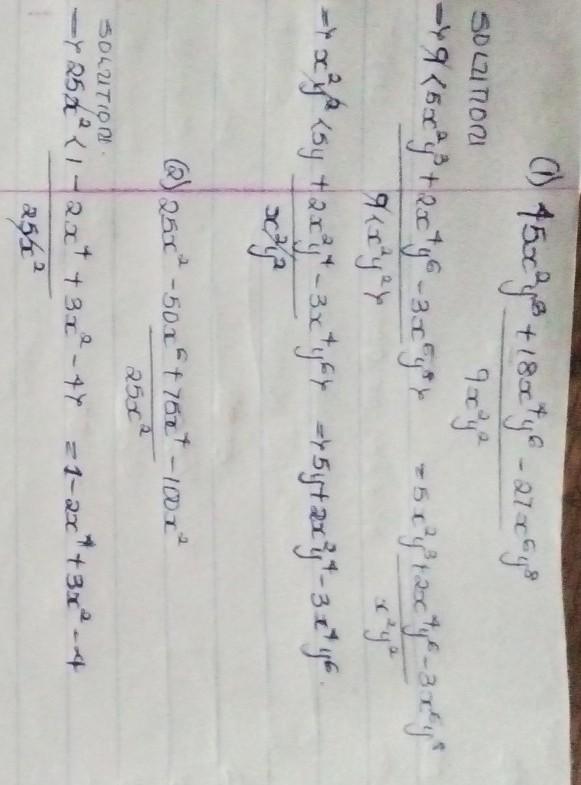 (1) 45x²y³ + 18x⁴y⁶ - 27x⁶y⁸
9x²y²
SOLUTION
→ 9(5x²y³ + 2x⁴y⁶ - 3x⁶y⁸) = 5x²y³ + 2x⁴y⁶ - 3x⁶y⁸
9(x²y²) x²y²
→ x²y²(5y + 2x²y⁴ - 3x⁴y⁶) → 5y + 2x²y⁴ - 3x⁴y⁶.
x²y²
(2) 25x² - 50x⁶ + 75x⁴ - 100x²
25x²
SOLUTION.
→ 25x²(1 - 2x⁴ + 3x² - 4) = 1 - 2x⁴ + 3x² - 4
25x²